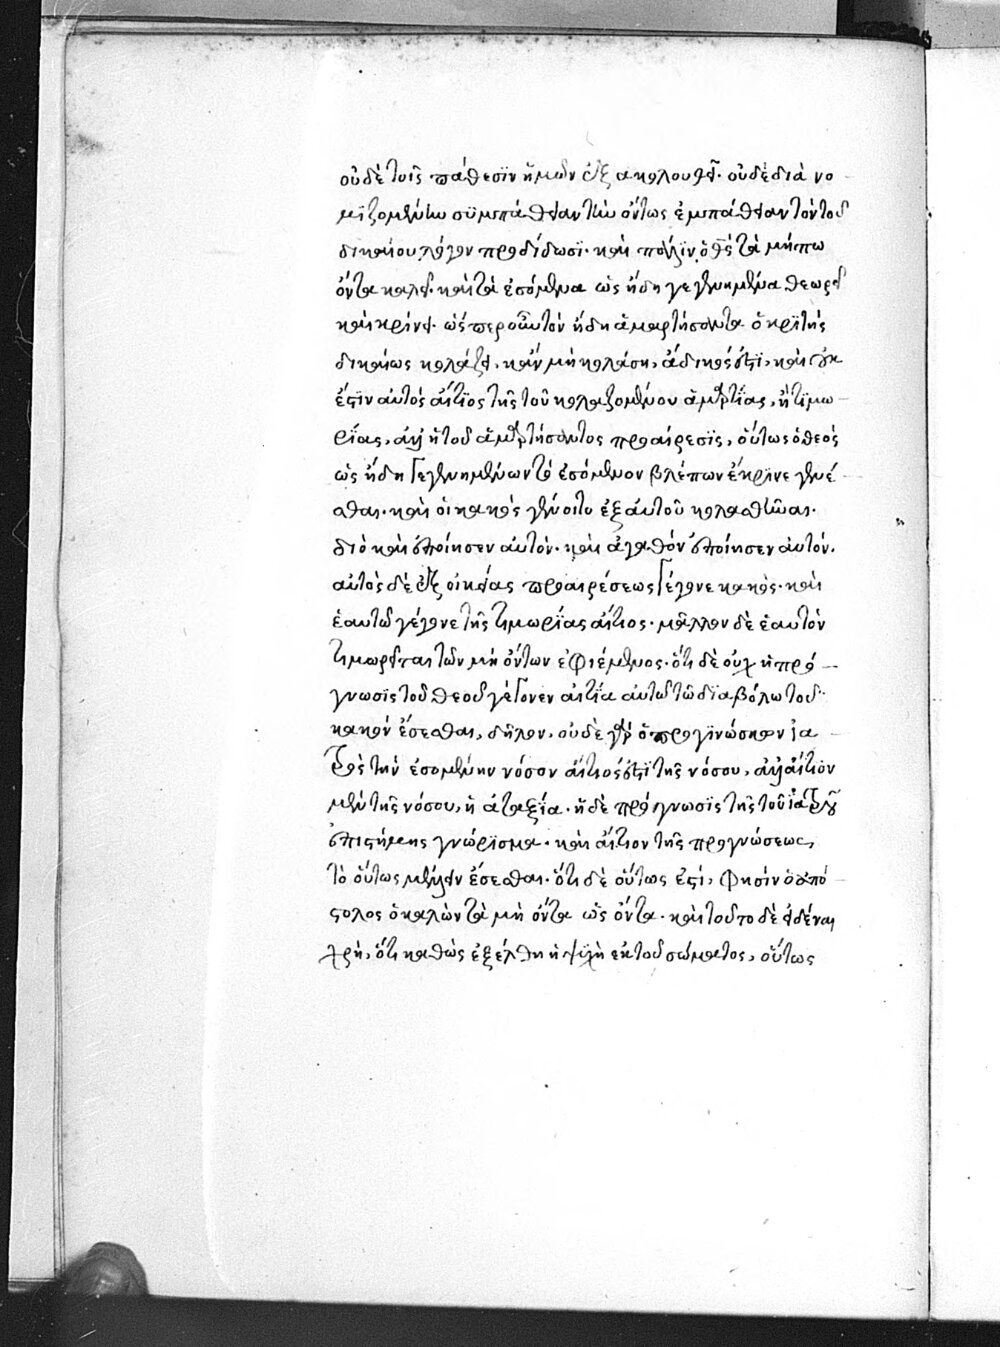 οὐδὲ τοῖς πάθεσϊν ἡμῶν ἐξακολουθεῖ· οὐδὲ διὰ νο
μιζομένην συμπάθειαν τὴν ὄντως ἐμπάθειαν τὸν τοῦ
δικαίου λόγον προδίδωσι· καὶ πάλϊν, ὁ θεὸς τὰ μήπω
ὄντα καλεῖ· καὶ τὰ ἐσόμενα ὡς ἤδη γεγενημένα θεωρεῖ
καὶ κρίνει· ὥσπερ οὖν τὸν ἤδη ἁμαρτήσαντα ὁ κρϊτὴς
δικαίως κολάζει, κἂν μὴ κολάση, ἄδικός ἐστϊ, καὶ οὐκ
ἔστϊν αὐτὸς αἴτϊος τῆς τοῦ κολαζομένου ἁμαρτίας, ἢ τϊμω
ρίας, ἀλλ' ἡ τοῦ ἁμαρτήσαντος προαίρεσϊς, οὕτως ὁ θεὸς
ὡς ἤδη γεγενημένων τὸ ἐσόμενον βλέπων ἔκρϊνε γενέ
σθαι· καὶ εἰ κακὸς γένοιτο ἐξ αὐτοῦ κολασθῆναι·
διὸ καὶ ἐποίησεν αὐτὸν· καὶ ἀγαθὸν ἐποίησεν αὐτόν·
αὐτὸς δὲ ἐξ οἰκείας προαιρέσεως γέγονε κακός· καὶ
ἑαυτῶ γέγονε τῆς τιμωρίας αἴτιος· μᾶλλον δὲ ἑαυτὸν
τιμωρεῖται τῶν μὴ ὄντων ἐφιέμενος· ὅτι δὲ οὐχ ἡ πρό
γνωσϊς τοῦ θεοῦ γέγονεν αἰτία αὐτῶ τῶ διαβόλω τοῦ
κακὸν ἔσεσθαι, δῆλον, οὐδὲ γὰρ ὁ προγϊνώσκων ἰα
τρὸς τὴν ἐσομένην νόσον αἴτιός ἐστϊ τῆς νόσου, ἀλλ' αἴτιον
μὲν τῆς νόσου, ἡ ἀταξία· ἡ δὲ πρόγνωσϊς τῆς τοῦ ἰατροῦ
ἐπιστήμης γνώρϊσμα· καὶ αἴτιον τῆς προγνώσεως,
τὸ οὕτως μέλλειν ἔσεσθαι· ὅτι δὲ οὕτως ἐστϊ, φησὶν ὁ ἀπό
στολος ὁ καλῶν τὰ μὴ ὄντα ὡς ὄντα· καὶ τοῦτο δὲ εἰδέναι
χρὴ, ὅτι καθὼς ἐξέλθη ἡ ψυχὴ ἐκ τοῦ σώματος, οὕτως